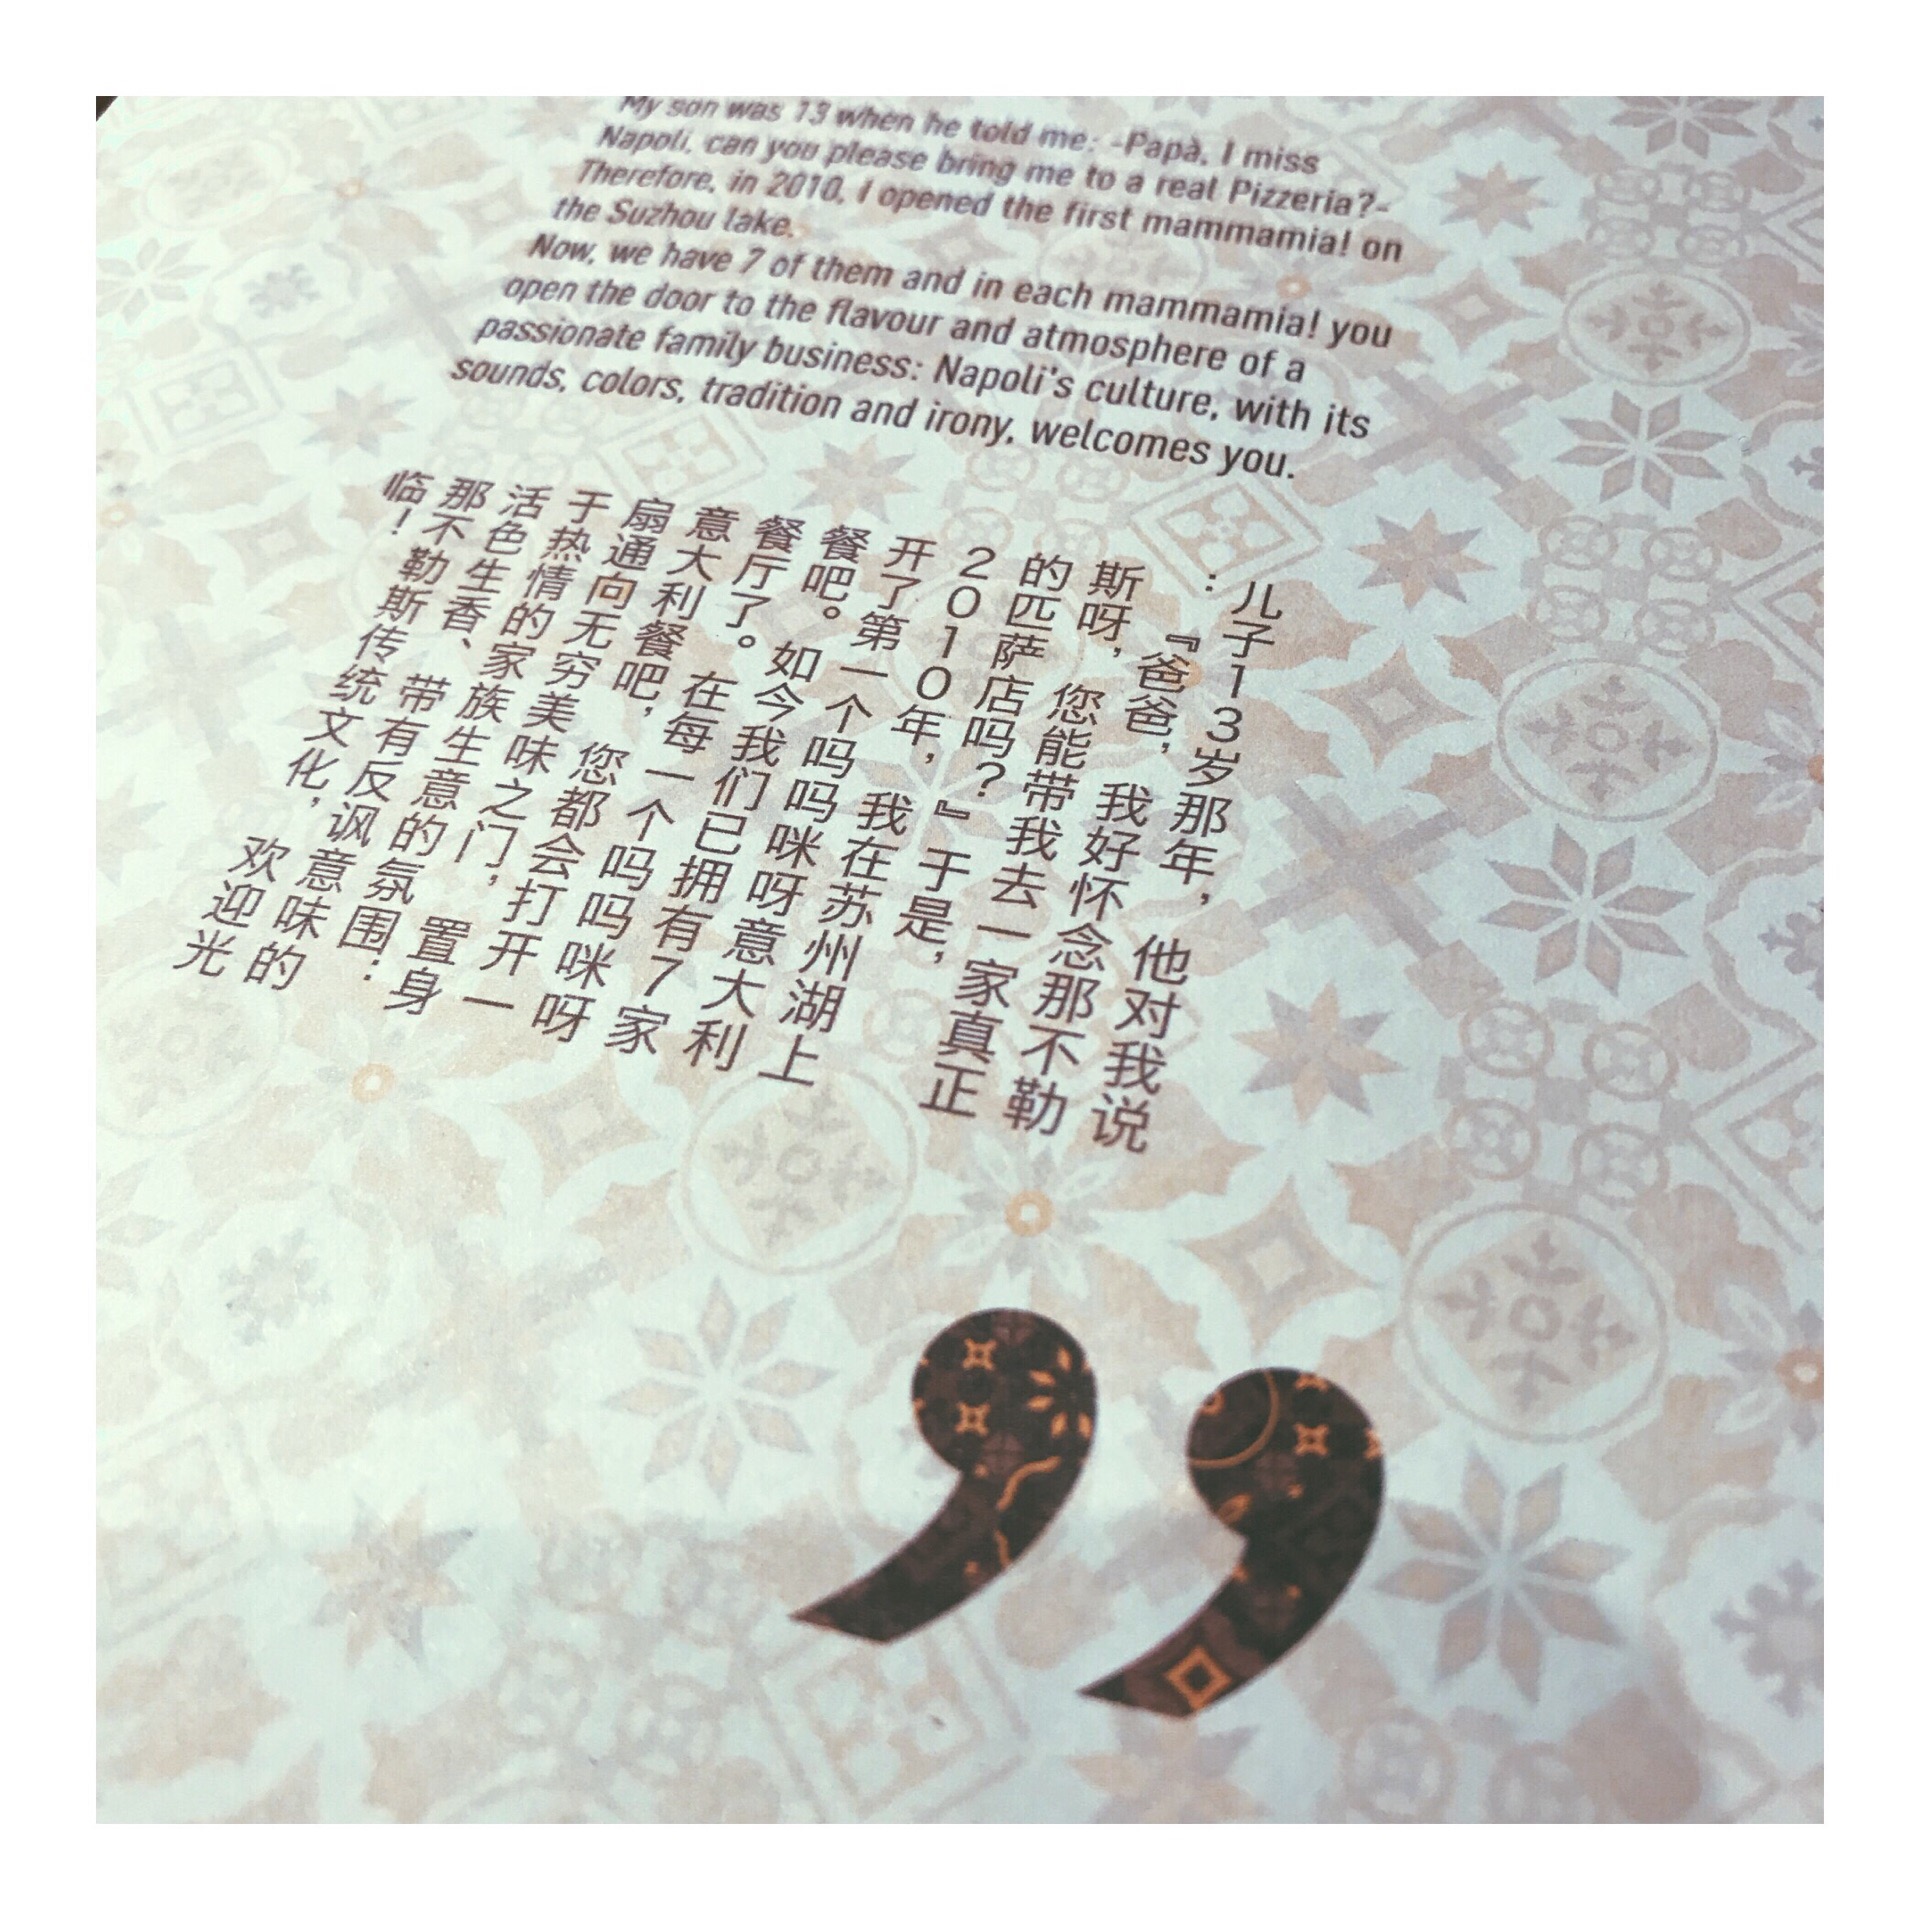 My son was 13 when he told me: -Papà, I miss
Napoli, can you please bring me to a real Pizzeria?-
Therefore, in 2010, I opened the first mammamia! on
the Suzhou lake.
Now, we have 7 of them and in each mammamia! you
open the door to the flavour and atmosphere of a
passionate family business: Napoli's culture, with its
sounds, colors, tradition and irony, welcomes you.
儿子13岁那年，他对我说
：『爸爸，我好怀念那不勒
斯呀，您能带我去一家真正
的匹萨店吗？』于是，
2010年，我在苏州湖上
开了第一个吗吗咪呀意大利
餐吧。如今我们已拥有7家
餐厅了。在每一个吗吗咪呀
意大利餐吧，您都会打开一
扇通向无穷美味之门，置身
于热情的家族生意的氛围：
活色生香、带有反讽意味的
那不勒斯传统文化，欢迎光
临！
”